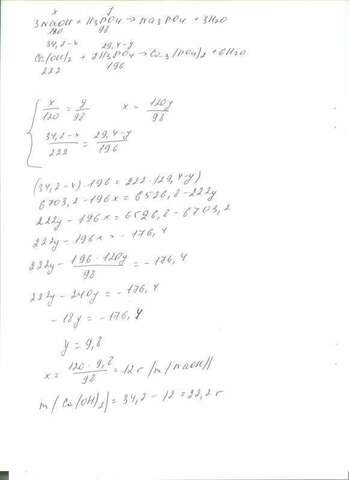 x y
3NaOH + H3PO4 → Na3PO4 + 3H2O
120 98
34,2-x 29,4-y
Ca(OH)2 + 2H3PO4 → Ca3(PO4)2 + 6H2O
222 196
x/120 = y/98 x = 120y/98
34,2-x/222 = 29,4-y/196
(34,2-x)·196 = 222·(29,4-y)
6703,2 - 196x = 6526,8 - 222y
222y - 196x = 6526,8 - 6703,2
222y - 196x = -176,4
222y - 196·120y/98 = -176,4
222y - 240y = -176,4
-18y = -176,4
y = 9,8
x = 120·9,8/98 = 12 г (m(NaOH))
m(Ca(OH)2) = 34,2 - 12 = 22,2 г